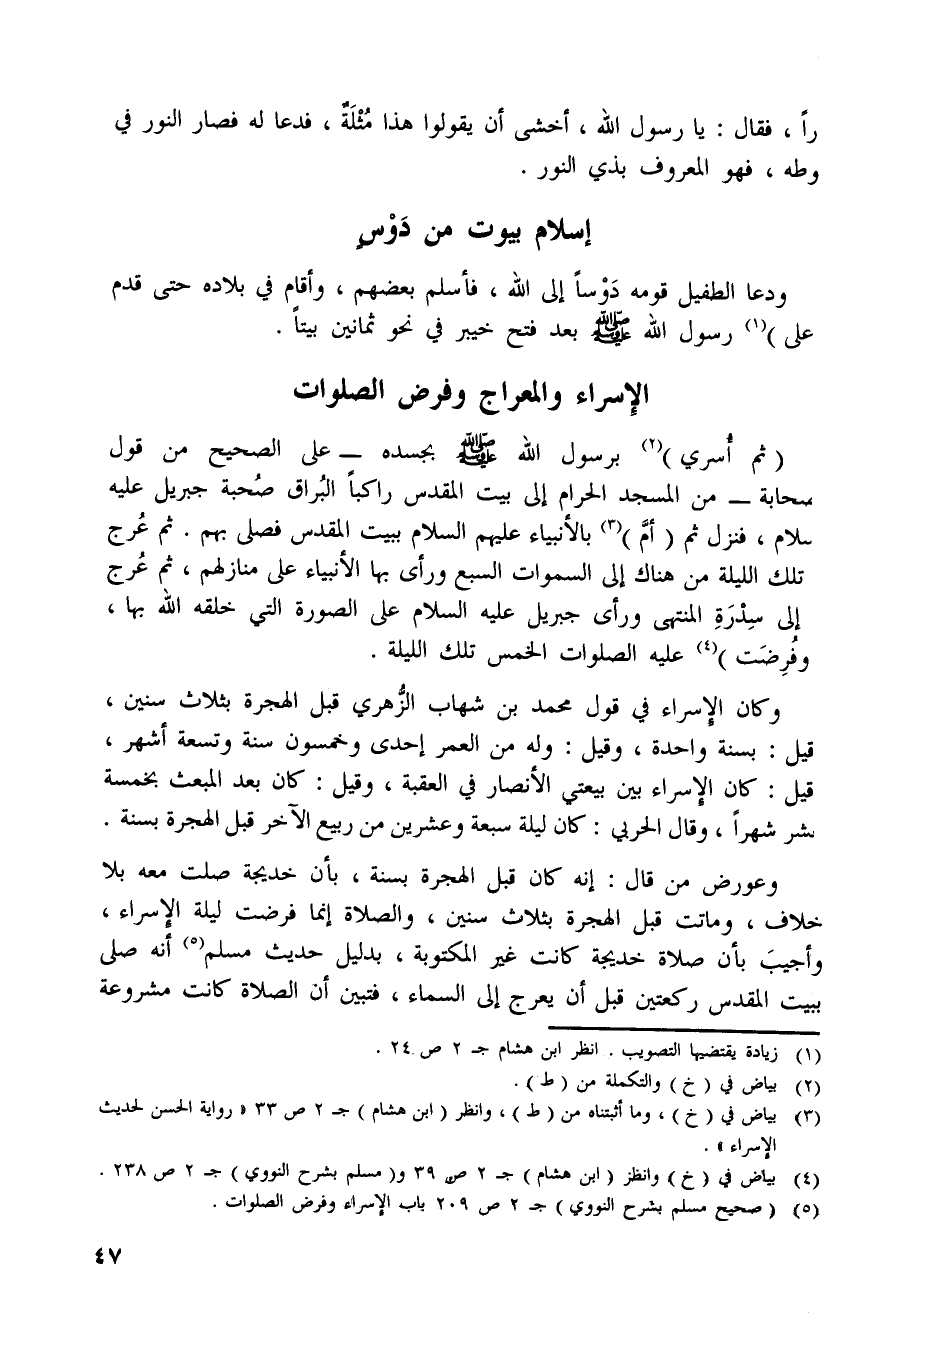 راً ، فقال : يا رسول الله ، أخشى أن يقولوا هذا مُثْلَةٌ ، فدعا له فصار النور في
وطه ، فهو المعروف بذي النور .
إسلام بيوت من دَوْسٍ
ودعا الطفيل قومه دَوْساً إلى الله ، فأسلم بعضهم ، وأقام في بلاده حتى قدم
على )(١) رسول الله ﷺ بعد فتح خيبر في نحو ثمانين بيتاً .
الإسراء والمعراج وفرض الصلوات
( ثم أُسري )(٢) برسول الله ﷺ بجسده — على الصحيح من قول
سحابة — من المسجد الحرام إلى بيت المقدس راكباً البُراق صُحبة جبريل عليه
سلام ، فنزل ثم ( أمَّ )(٣) بالأنبياء عليهم السلام ببيت المقدس فصلى بهم . ثم عُرج
تلك الليلة من هناك إلى السموات السبع ورأى بها الأنبياء على منازلهم ، ثم عُرج
إلى سِدْرَةِ المنتهى ورأى جبريل عليه السلام على الصورة التي خلقه الله بها ،
وفُرِضَت )(٤) عليه الصلوات الخمس تلك الليلة .
وكان الإسراء في قول محمد بن شهاب الزُّهري قبل الهجرة بثلاث سنين ،
قيل : بسنة واحدة ، وقيل : وله من العمر إحدى وخمسون سنة وتسعة أشهر ،
قيل : كان الإسراء بين بيعتي الأنصار في العقبة ، وقيل : كان بعد المبعث بخمسة
شر شهراً ، وقال الحربي : كان ليلة سبعة وعشرين من ربيع الآخر قبل الهجرة بسنة .
وعورض من قال : إنه كان قبل الهجرة بسنة ، بأن خديجة صلت معه بلا
خلاف ، وماتت قبل الهجرة بثلاث سنين ، والصلاة إنما فرضت ليلة الإسراء ،
وأجيبَ بأن صلاة خديجة كانت غير المكتوبة ، بدليل حديث مسلم(٥) أنه صلى
ببيت المقدس ركعتين قبل أن يعرج إلى السماء ، فتبين أن الصلاة كانت مشروعة
(١) زيادة يقتضيها التصويب . انظر ابن هشام جـ ٢ ص ٢٤ .
(٢) بياض في ( خ ) والتكملة من ( ط ) .
(٣) بياض في ( خ ) ، وما أثبتناه من ( ط ) ، وانظر ( ابن هشام ) جـ ٢ ص ٣٣ « رواية الحسن لحديث
الإسراء » .
(٤) بياض في ( خ ) وانظر ( ابن هشام ) جـ ٢ ص ٣٩ و( مسلم بشرح النووي ) جـ ٢ ص ٢٣٨ .
(٥) ( صحيح مسلم بشرح النووي ) جـ ٢ ص ٢٠٩ باب الإسراء وفرض الصلوات .
٤٧